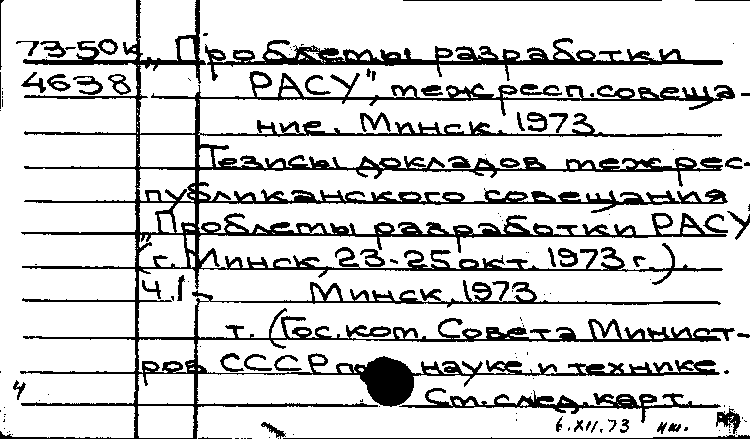 73-50к „Проблемы разработки
4638 РАСУ", межресп.совеща-
ние. Минск. 1973.
Тезисы докладов межрес-
публиканского совещания
„Проблемы разработки РАСУ
(г. Минск, 23-25 окт. 1973 г.).
Ч.1- Минск, 1973.
т. (Гос.ком. Совета Минист-
ров СССР по науке и технике.
4 См. след. карт.
6.XII.73 нш.